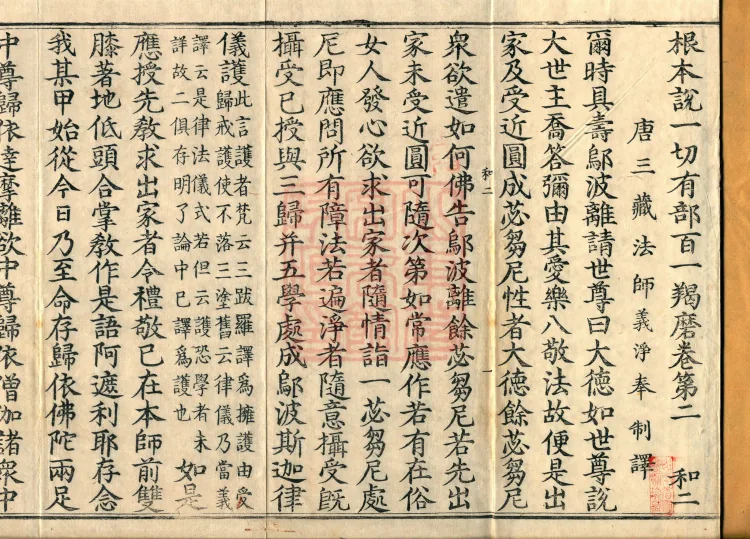 根本說一切有部百一羯磨卷第二 和二
唐三藏法師義淨奉 制譯
爾時具壽鄔波離請世尊曰大德如世尊說
大世主喬答彌由其愛樂八敬法故便是出
家及受近圓成苾芻尼性者大德餘苾芻尼
和二 一
衆欲遣如何佛告鄔波離餘苾芻尼若先出
家未受近圓可隨次第如常應作若有在俗
女人發心欲求出家者隨情詣一苾芻尼處
尼即應問所有障法若遍淨者隨意攝受旣
攝受已授與三歸并五學處成鄔波斯迦律
儀護此言護者梵云三跋羅譯爲擁護由受
歸戒護使不落三塗舊云律儀乃當義
譯云是律法儀式若但云護恐學者未
詳故二俱存明了論中已譯爲護也 如是
應授先教求出家者令禮敬已在本師前雙
膝著地低頭合掌教作是語阿遮利耶存念
我某甲始從今日乃至命存歸依佛陀兩足
中尊歸依達摩離欲中尊歸依僧伽諸衆中